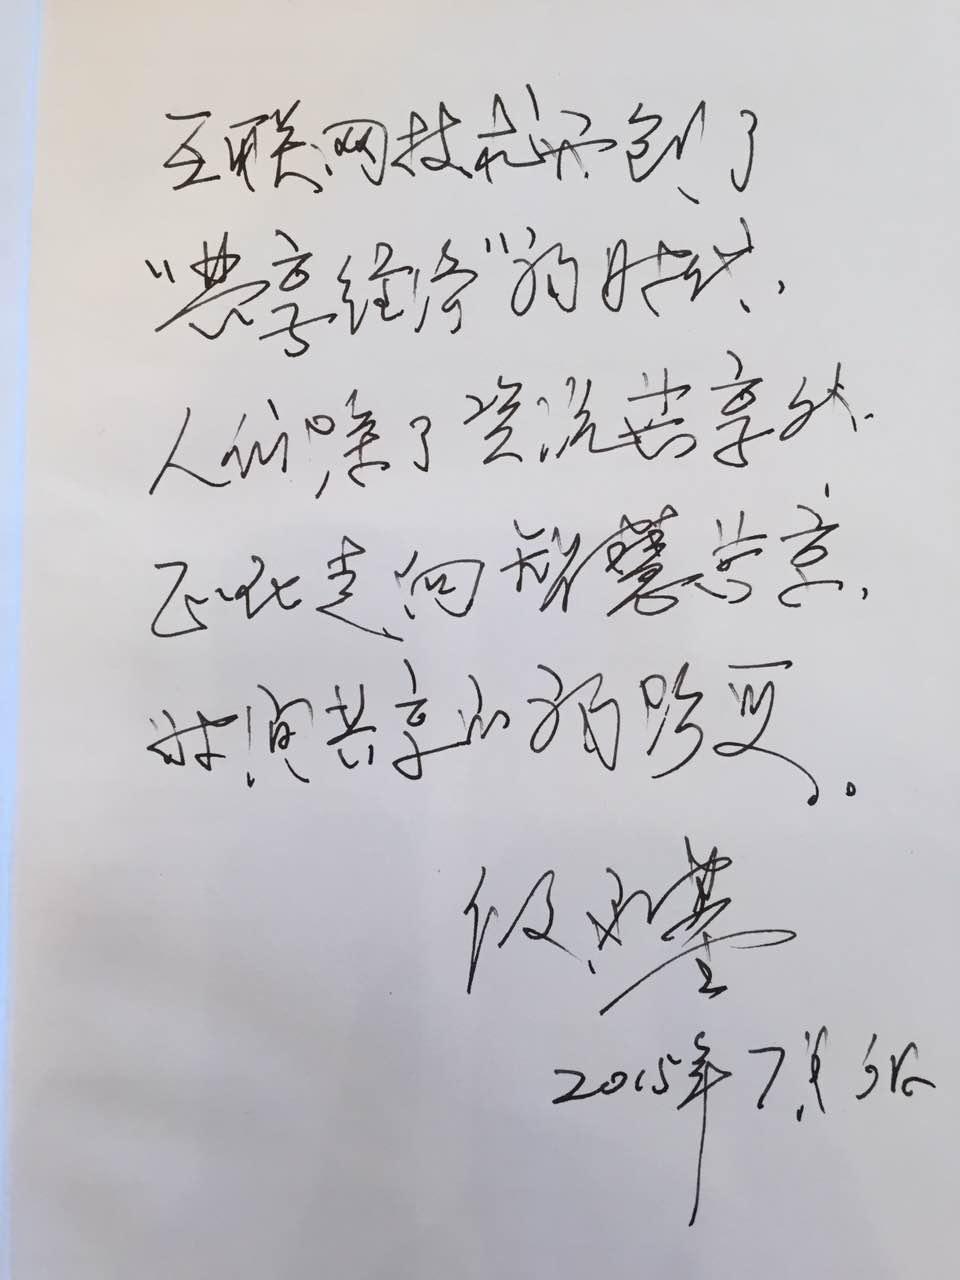 互联网技术开创了
“共享经济”的时代,
人们除了资源共享外,
正在走向智慧共享,
时间共享的跨更。
段永基
2015年